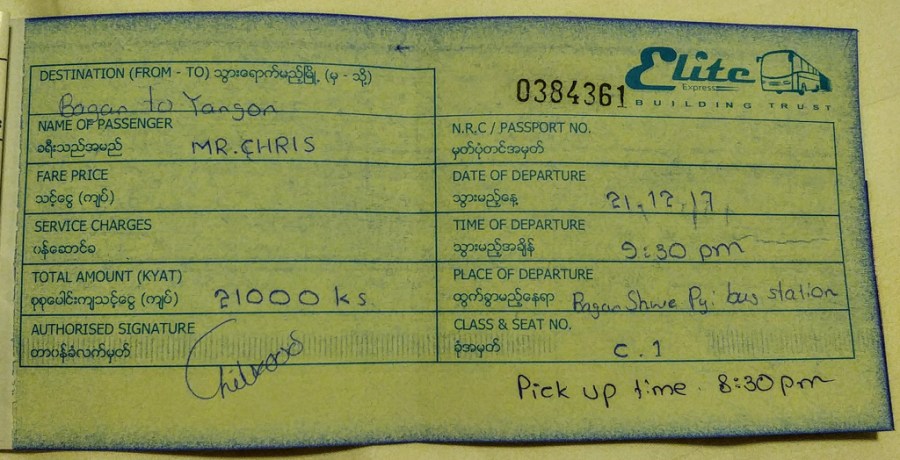 Elite
Express
BUILDING TRUST
0384361
DESTINATION (FROM - TO) သွားရောက်မည့်မြို့ (မှ - သို့)
Bagan to Yangon
NAME OF PASSENGER
ခရီးသည်အမည် MR. CHRIS
N.R.C / PASSPORT NO.
မှတ်ပုံတင်အမှတ်
FARE PRICE
သင့်ငွေ (ကျပ်)
DATE OF DEPARTURE
သွားမည့်နေ့ 21.12.17
SERVICE CHARGES
ဝန်ဆောင်ခ
TIME OF DEPARTURE
သွားမည့်အချိန် 9:30 pm
TOTAL AMOUNT (KYAT)
စုစုပေါင်းကျသင့်ငွေ (ကျပ်) 21000 ks
PLACE OF DEPARTURE
ထွက်ခွာမည့်နေရာ Bagan Shwe Pyi bus station
AUTHORISED SIGNATURE
တာဝန်ခံလက်မှတ်
CLASS & SEAT NO.
ခုံအမှတ် C.1
Pick up time. 8:30 pm